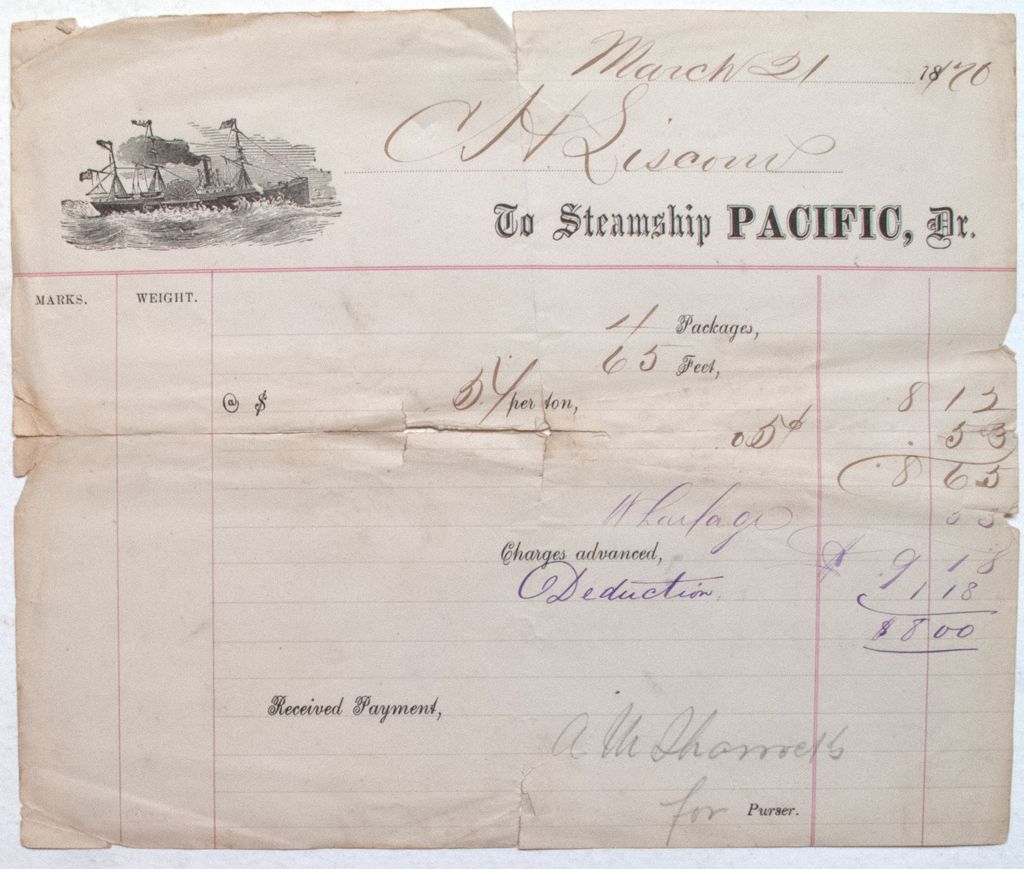 March 21 1870
C H Liscom
To Steamship PACIFIC, Dr.
MARKS. WEIGHT.
4 Packages,
65 Feet,
@ $ 5/ per ton, 8 12
.05¢ . 53
8 65
Wharfage 53
Charges advanced, $ 9 18
Deduction. 1 18
$8 00
Received Payment,
A M
for Purser.